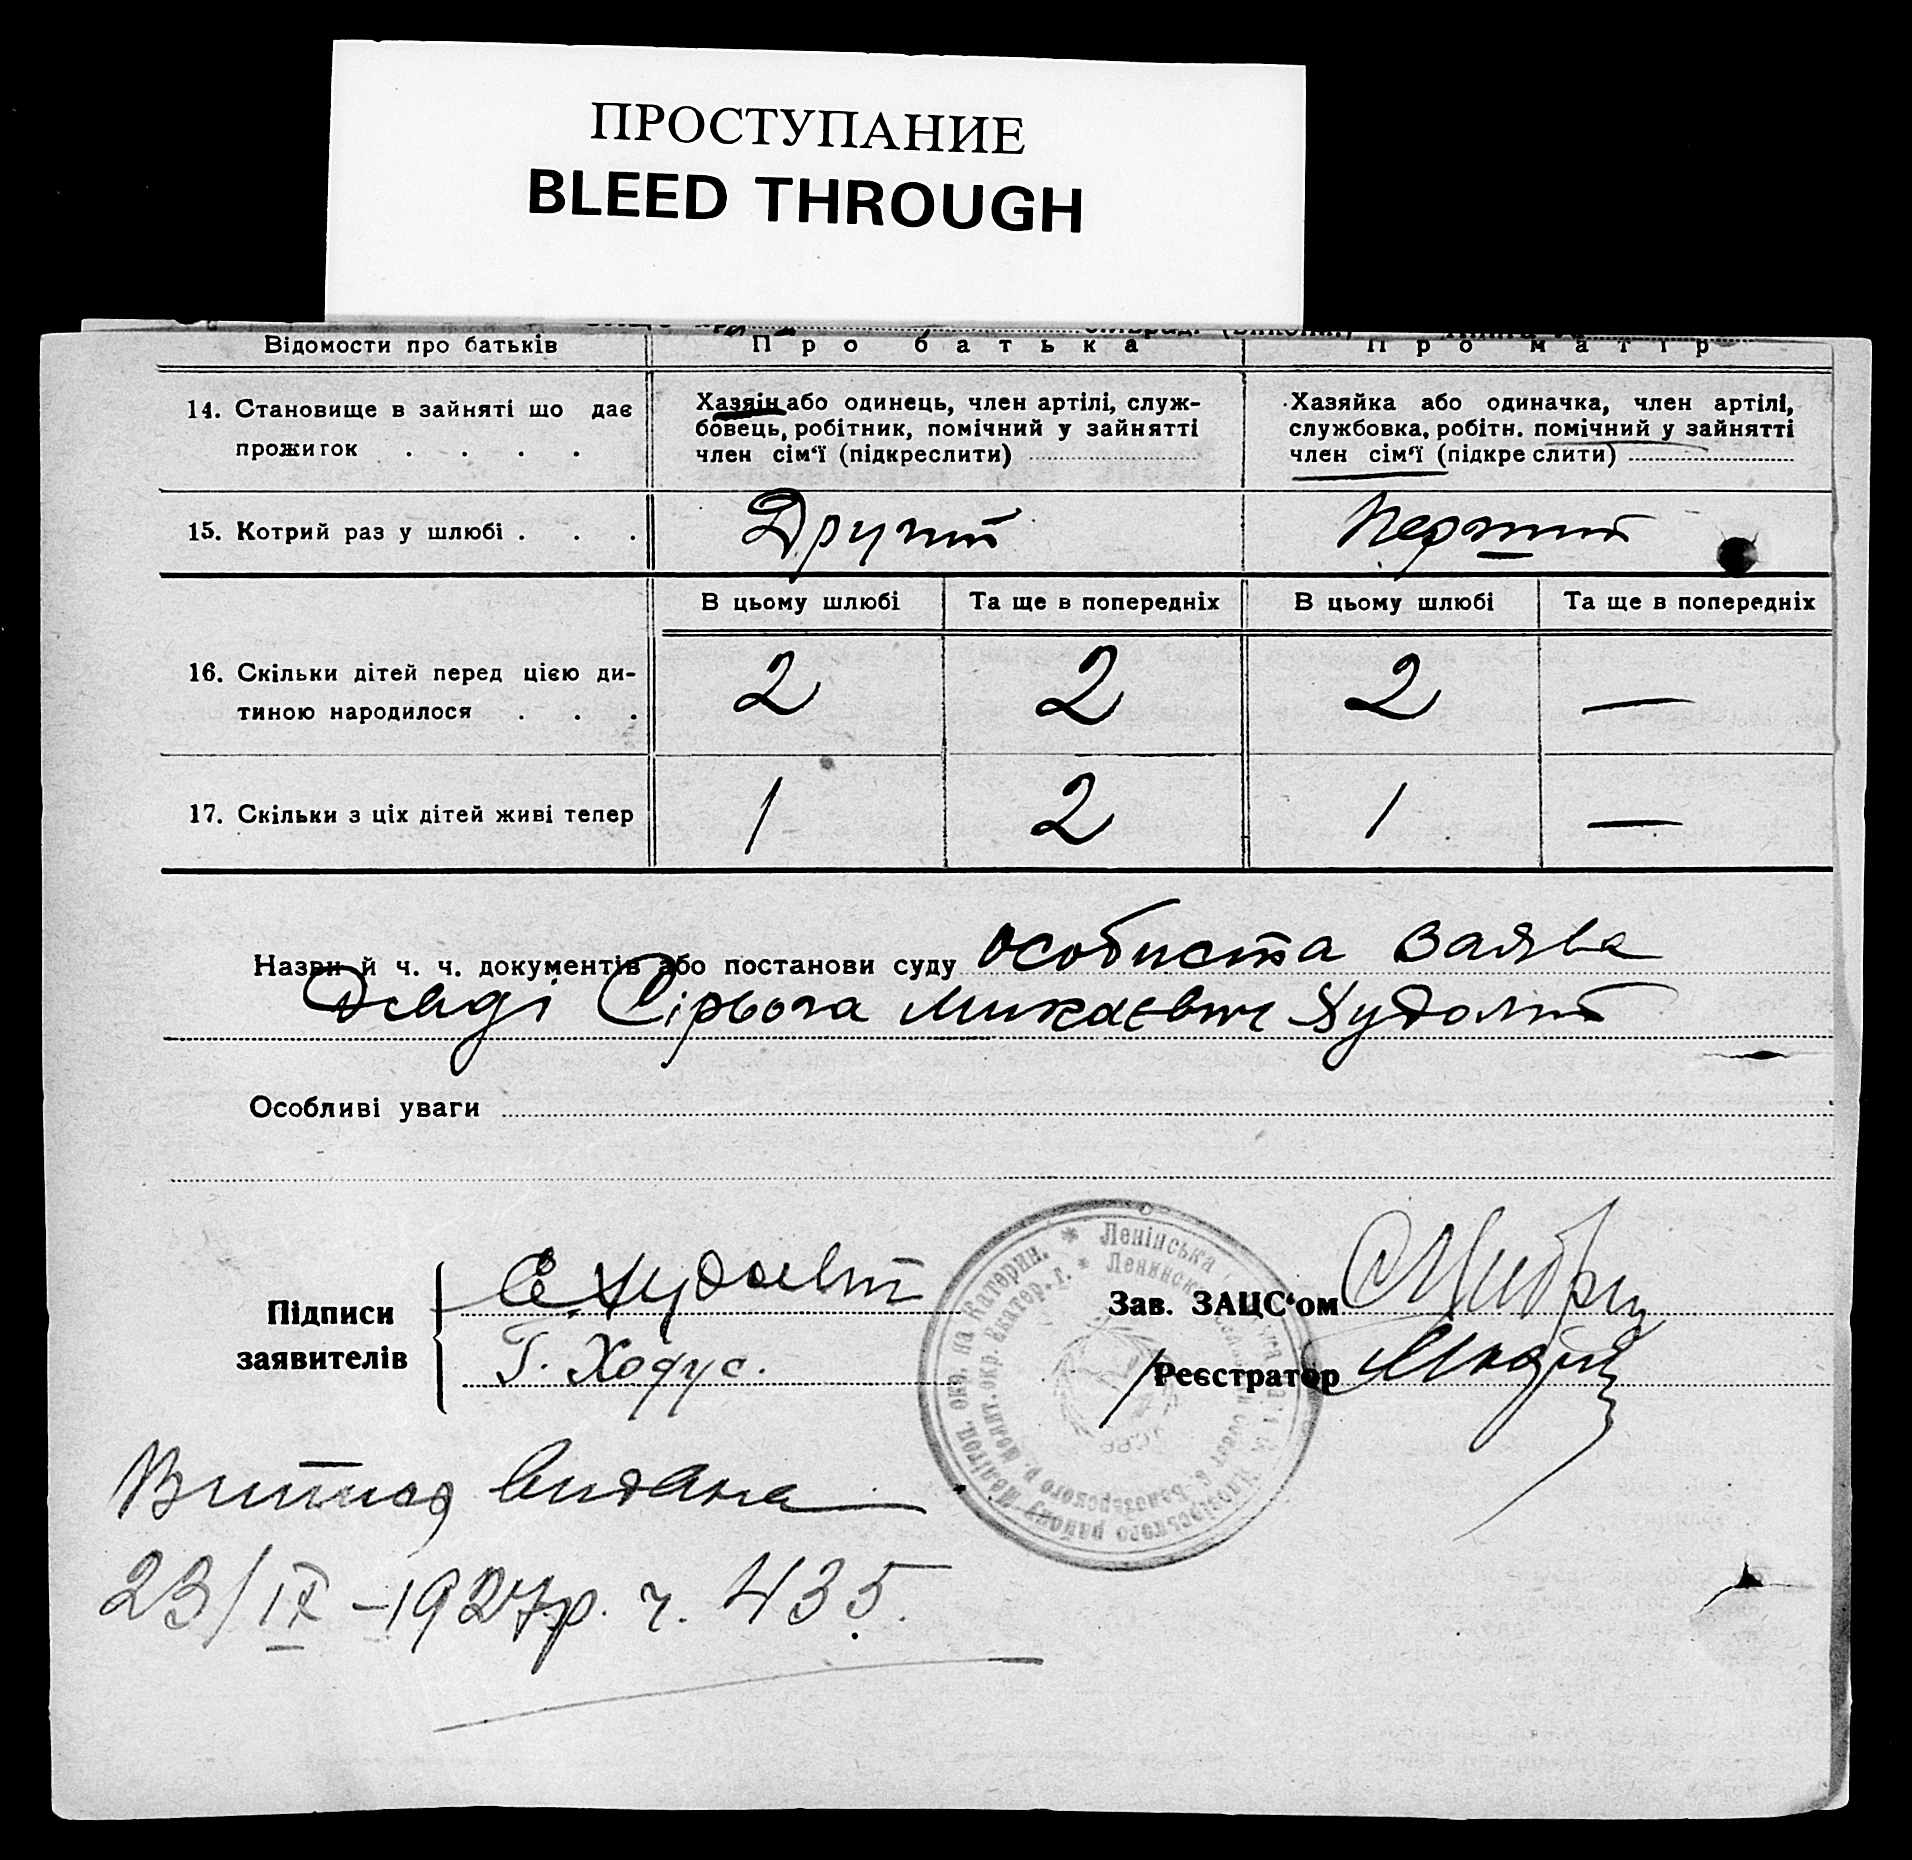 ПРОСТУПАНИЕ
BLEED THROUGH
Відомости про батьків Про батька Про матір
14. Становище в зайняті що дає прожиток . . . .
Хазяін або одинець, член артілі, служ-
бовець, робітник, помічний у зайнятті
член сім'ї (підкреслити)
Хазяйка або одиначка, член артілі,
службовка, робітн. помічний у зайнятті
член сім'ї (підкреслити)
15. Котрий раз у шлюбі . . . Другий Перший
В цьому шлюбі Та ще в попередніх В цьому шлюбі Та ще в попередніх
16. Скільки дітей перед цією ди-
тиною народилося . . . 2 2 2 —
17. Скільки з ціх дітей живі тепер 1 2 1 —
Назви й ч. ч. документів або постанови суду особиста заява
Сірьога
Особливі уваги
Підписи
заявителів
Г. Ходус.
Зав. ЗАЦС'ом
Реєстратор
Ленінська
Мелітоп. окр. на Катерин.
Витяг видана
23/IX-1927р. ч. 435.